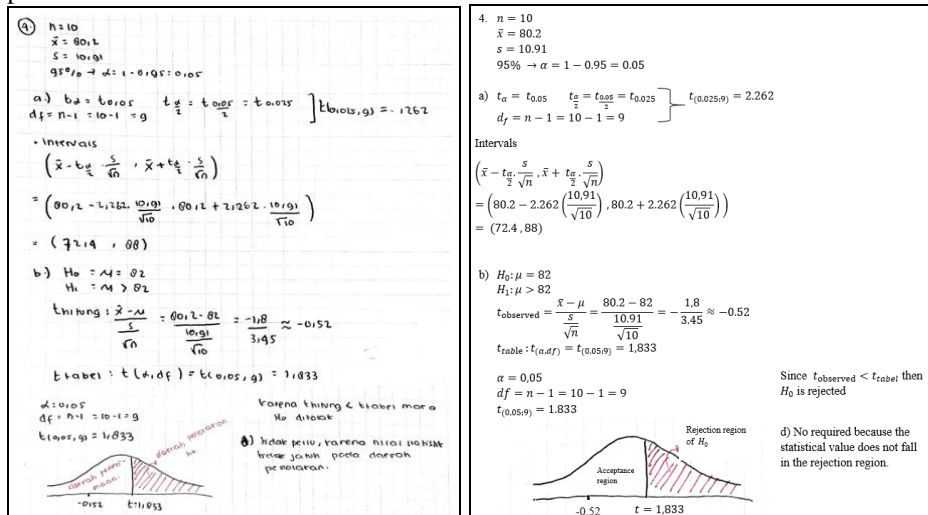 4. n=10
x̄ = 80,2
s = 10,91
95% → α = 1 - 0,95 = 0,05
a.) tα = t0,05 tα/2 = t0,05/2 = t0,025 ] t(0,025,9) = 2,262
df = n-1 = 10-1 = 9
• Intervals
(x̄ - tα/2 · s/√n , x̄ + tα/2 · s/√n)
= (80,2 - 2,262 · 10,91/√10 , 80,2 + 2,262 · 10,91/√10)
= (72,4 , 88)
b.) H₀ = μ = 82
H₁ = μ > 82
t hitung : x̄-μ / s/√n = 80,2-82 / 10,91/√10 = -1,8/3,45 ≈ -0,52
t tabel : t(α,df) = t(0,05,9) = 1,833
α = 0,05
df = n-1 = 10-1 = 9
t(0,05,9) = 1,833
karena t hitung < t tabel maka
H₀ ditolak
d) tidak perlu, karena nilai statistik
tidak jatuh pada daerah
penolakan.
daerah penolakan
H₀
daerah
-0,52 t=1,833
4. n = 10
x̄ = 80.2
s = 10.91
95% → α = 1 − 0.95 = 0.05
a) tα = t0.05 tα/2 = t0.05/2 = t0.025 t(0.025;9) = 2.262
df = n − 1 = 10 − 1 = 9
Intervals
(x̄ − tα/2 . s/√n , x̄ + tα/2 . s/√n)
= (80.2 − 2.262 (10,91/√10) , 80.2 + 2.262 (10,91/√10))
= (72.4 , 88)
b) H0: μ = 82
H1: μ > 82
tobserved = x̄ − μ / s/√n = 80.2 − 82 / 10.91/√10 = − 1,8/3.45 ≈ −0.52
ttable : t(α.df) = t(0,05;9) = 1,833
α = 0,05
df = n − 1 = 10 − 1 = 9
t(0,05;9) = 1.833
Since tobserved < ttabel then
H0 is rejected
d) No required because the
statistical value does not fall
in the rejection region.
Rejection region
of H0
Acceptance
region
-0.52 t = 1,833